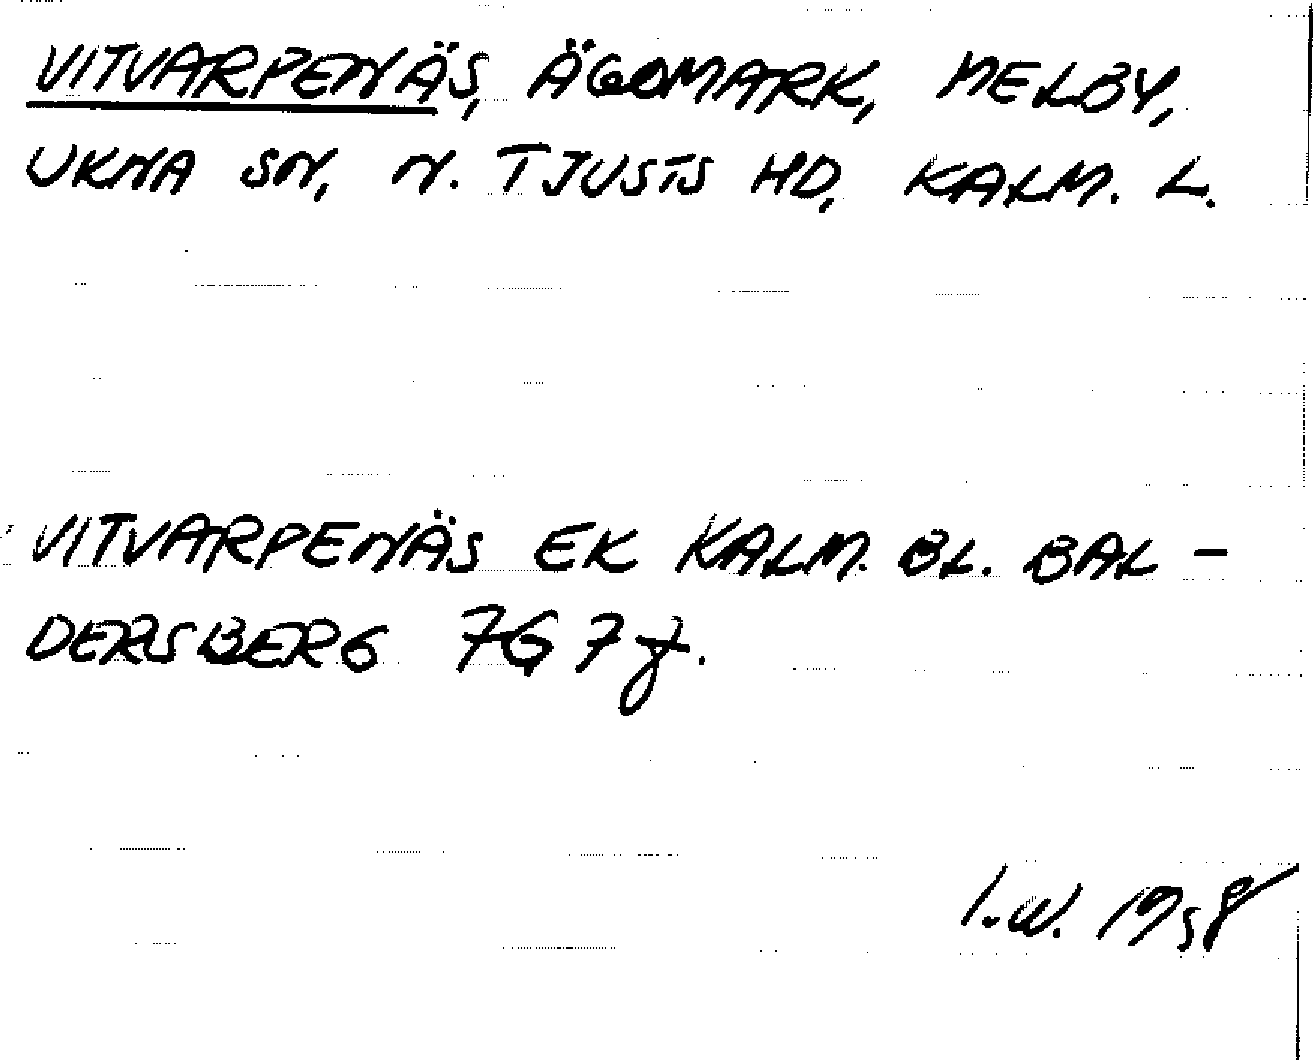 VITVARPENÄS, ÄGOMARK, MELBY,
UKNA SN, N. TJUSTS HD, KALM. L.
VITVARPENÄS EK KALM. BL. BAL-
DERSBERG 7G 7j.
I.W. 1958